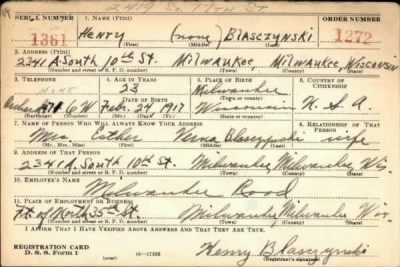 2419 So. 17TH ST.
SERIAL NUMBER 1. NAME (Print) ORDER NUMBER
1361 Henry (none) Blasczynski 1272
(First) (Middle) (Last)
2. ADDRESS (Print)
2341 A. South 10th St. Milwaukee, Milwaukee, Wisconsin
(Number and street or R. F. D. number) (Town) (County) (State)
3. TELEPHONE 4. AGE IN YEARS 5. PLACE OF BIRTH 6. COUNTRY OF CITIZENSHIP
23 Milwaukee
DATE OF BIRTH (Town or county)
Feb. 24, 1917 Wisconsin U. S. A.
(Exchange) (Number) (Mo.) (Day) (Yr.) (State or country)
7. NAME OF PERSON WHO WILL ALWAYS KNOW YOUR ADDRESS 8. RELATIONSHIP OF THAT PERSON
Mrs. Esther Blasczynski wife
(Mr., Mrs., Miss) (First) (Middle) (Last)
9. ADDRESS OF THAT PERSON
2341 A. South 10th St. Milwaukee, Milwaukee, Wis.
(Number and street or R. F. D. number) (Town) (County) (State)
10. EMPLOYER'S NAME
Milwaukee Road
11. PLACE OF EMPLOYMENT OR BUSINESS
North 35th St. Milwaukee Milwaukee Wis.
(Number and street or R. F. D. number) (Town) (County) (State)
I AFFIRM THAT I HAVE VERIFIED ABOVE ANSWERS AND THAT THEY ARE TRUE.
REGISTRATION CARD
D. S. S. Form 1 16-17105 Henry Blasczynski
(Registrant's signature)